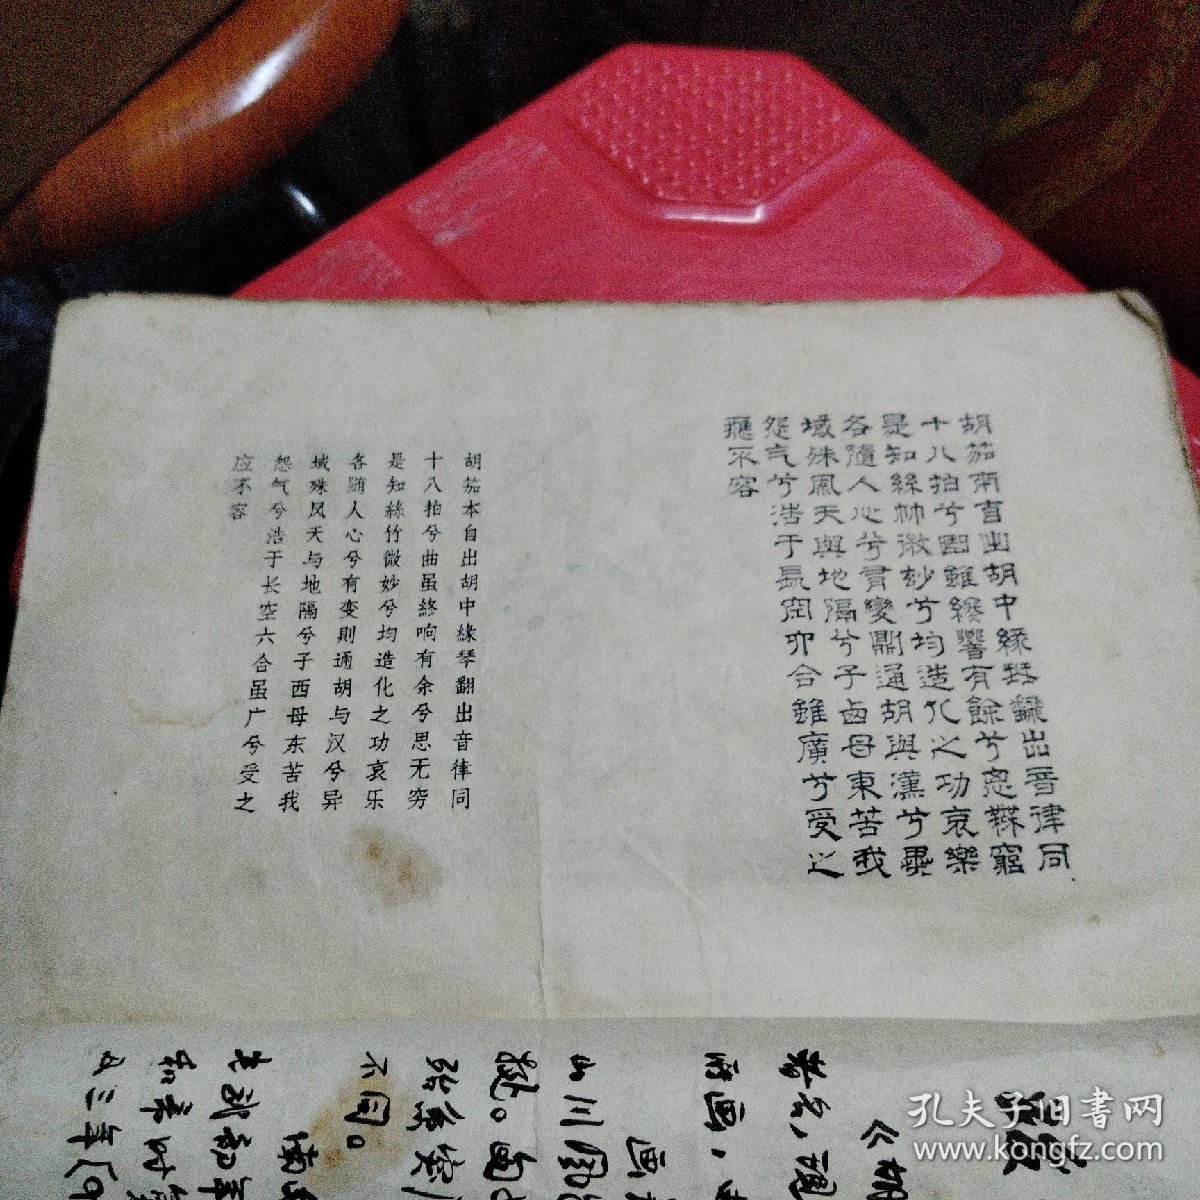 胡笳本自出胡中緣琴翻出音律同
十八拍兮曲雖終響有餘兮思無窮
是知絲竹微妙兮均造化之功哀樂
各隨人心兮有變則通胡與漢兮異
域殊風天與地隔兮子西母東苦我
怨气兮浩于長空六合雖廣兮受之
應不容
胡笳本自出胡中緣琴翻出音律同
十八拍兮曲虽終响有余兮思无穷
是知絲竹微妙兮均造化之功哀乐
各随人心兮有变則通胡与汉兮异
域殊风天与地隔兮子西母东苦我
怨气兮浩于长空六合虽广兮受之
应不容
《胡
山川
不同。
孔夫子旧書网
www.kongfz.com